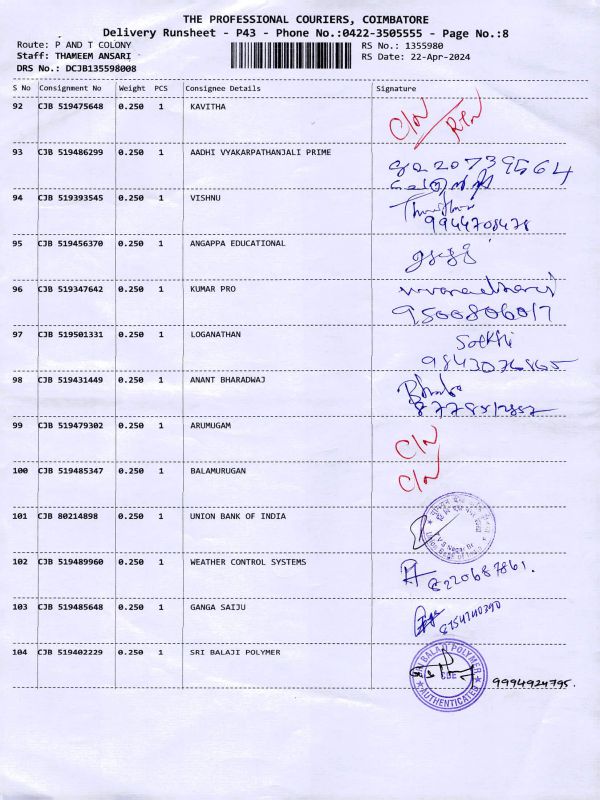 THE PROFESSIONAL COURIERS, COIMBATORE
Delivery Runsheet - P43 - Phone No.:0422-3505555 - Page No.:8
Route: P AND T COLONY
Staff: THAMEEM ANSARI
DRS No.: DCJB135598008
RS No.: 1355980
RS Date: 22-Apr-2024
S No Consignment No Weight PCS Consignee Details Signature
92 CJB 519475648 0.250 1 KAVITHA
93 CJB 519486299 0.250 1 AADHI VYAKARPATHANJALI PRIME
94 CJB 519393545 0.250 1 VISHNU
9944708478
95 CJB 519456370 0.250 1 ANGAPPA EDUCATIONAL
96 CJB 519347642 0.250 1 KUMAR PRO
9500806017
97 CJB 519501331 0.250 1 LOGANATHAN
98 CJB 519431449 0.250 1 ANANT BHARADWAJ
99 CJB 519479302 0.250 1 ARUMUGAM
100 CJB 519485347 0.250 1 BALAMURUGAN
101 CJB 80214898 0.250 1 UNION BANK OF INDIA
102 CJB 519489960 0.250 1 WEATHER CONTROL SYSTEMS
103 CJB 519485648 0.250 1 GANGA SAIJU
104 CJB 519402229 0.250 1 SRI BALAJI POLYMER
9994924795.